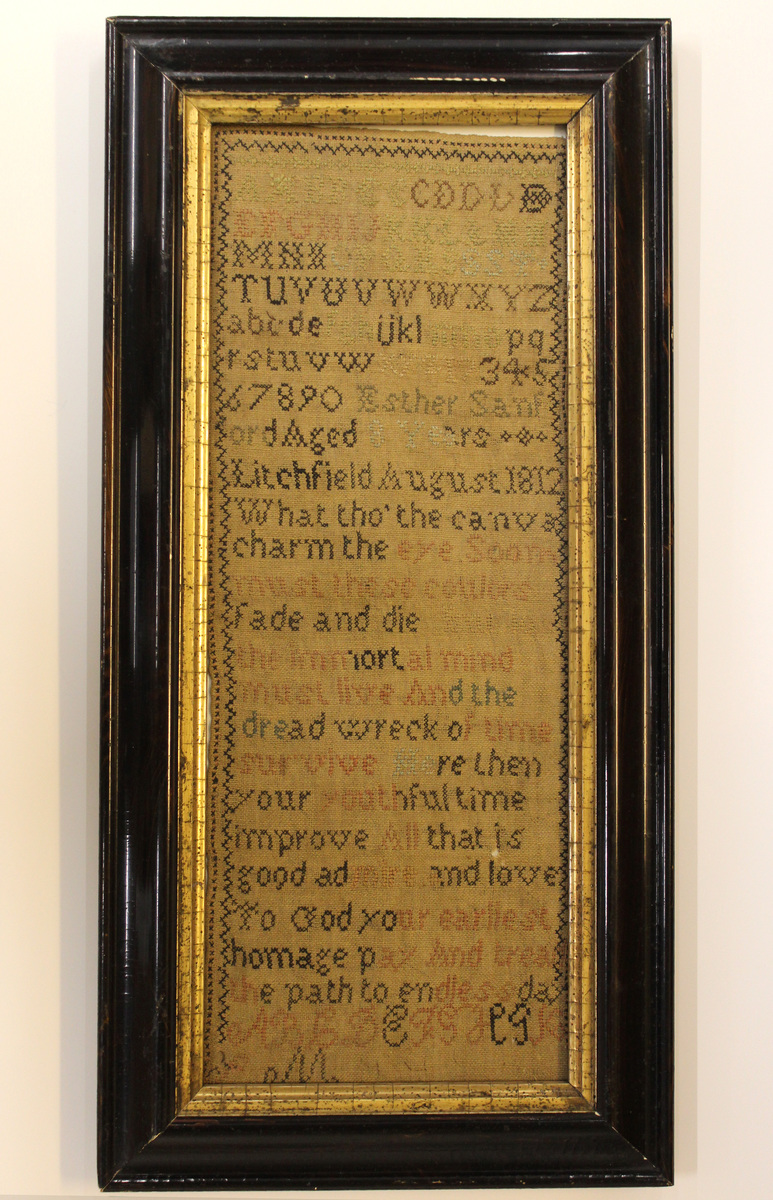 C D D
E F G H I J
M N
T U V U V W W X Y Z
abcde ijkl pq
rstuvw 345
67890 Esther Sanf
ord Aged 8 Years
Litchfield August 1812
What tho' the canvas
charm the eye. Soon
must these coulers
fade and die
the immortal mind
must live And the
dread wreck of time
survive Here then
your youthful time
improve All that is
good admire and love
To God your earliest
homage pay And tread
the path to endless day
A B F G H K
M